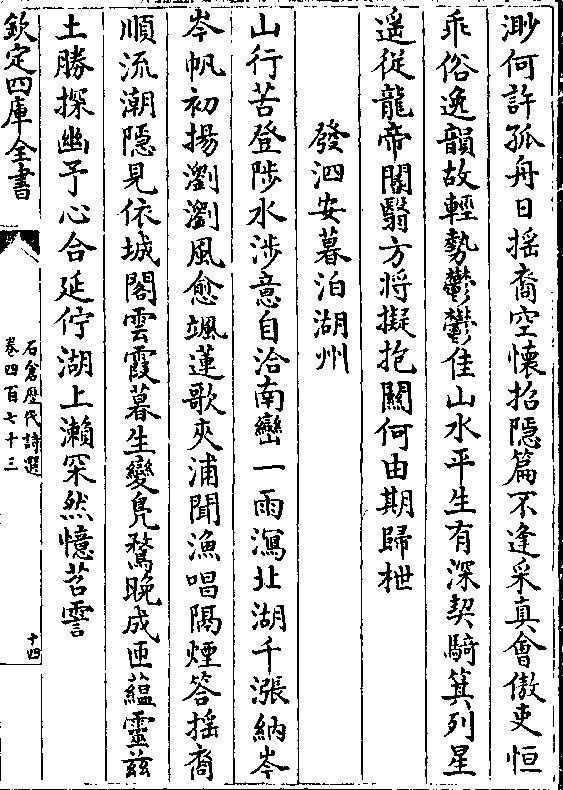 渺何許孤舟日揺裔空懐招隠篇不逢采真會傲吏恒
乖俗逸韻故輕勢鬱鬱佳山水平生有深契騎箕列星
遥従龍帝閽翳方將擬抱關何由期歸枻
發泗安暮泊湖州
山行苦登陟水涉意自洽南巒一雨瀉北湖千漲納岑
岑帆初揚瀏瀏風愈颯蓮歌夾浦聞漁唱隔煙答揺裔
順流潮隠見依城閣雲霞暮生變鳬鶩晩成匝藴靈兹
土勝探幽予心合延佇湖上瀨罙然憶苕霅
欽定四庫全書
石倉歴代詩選
卷四百七十三
十四